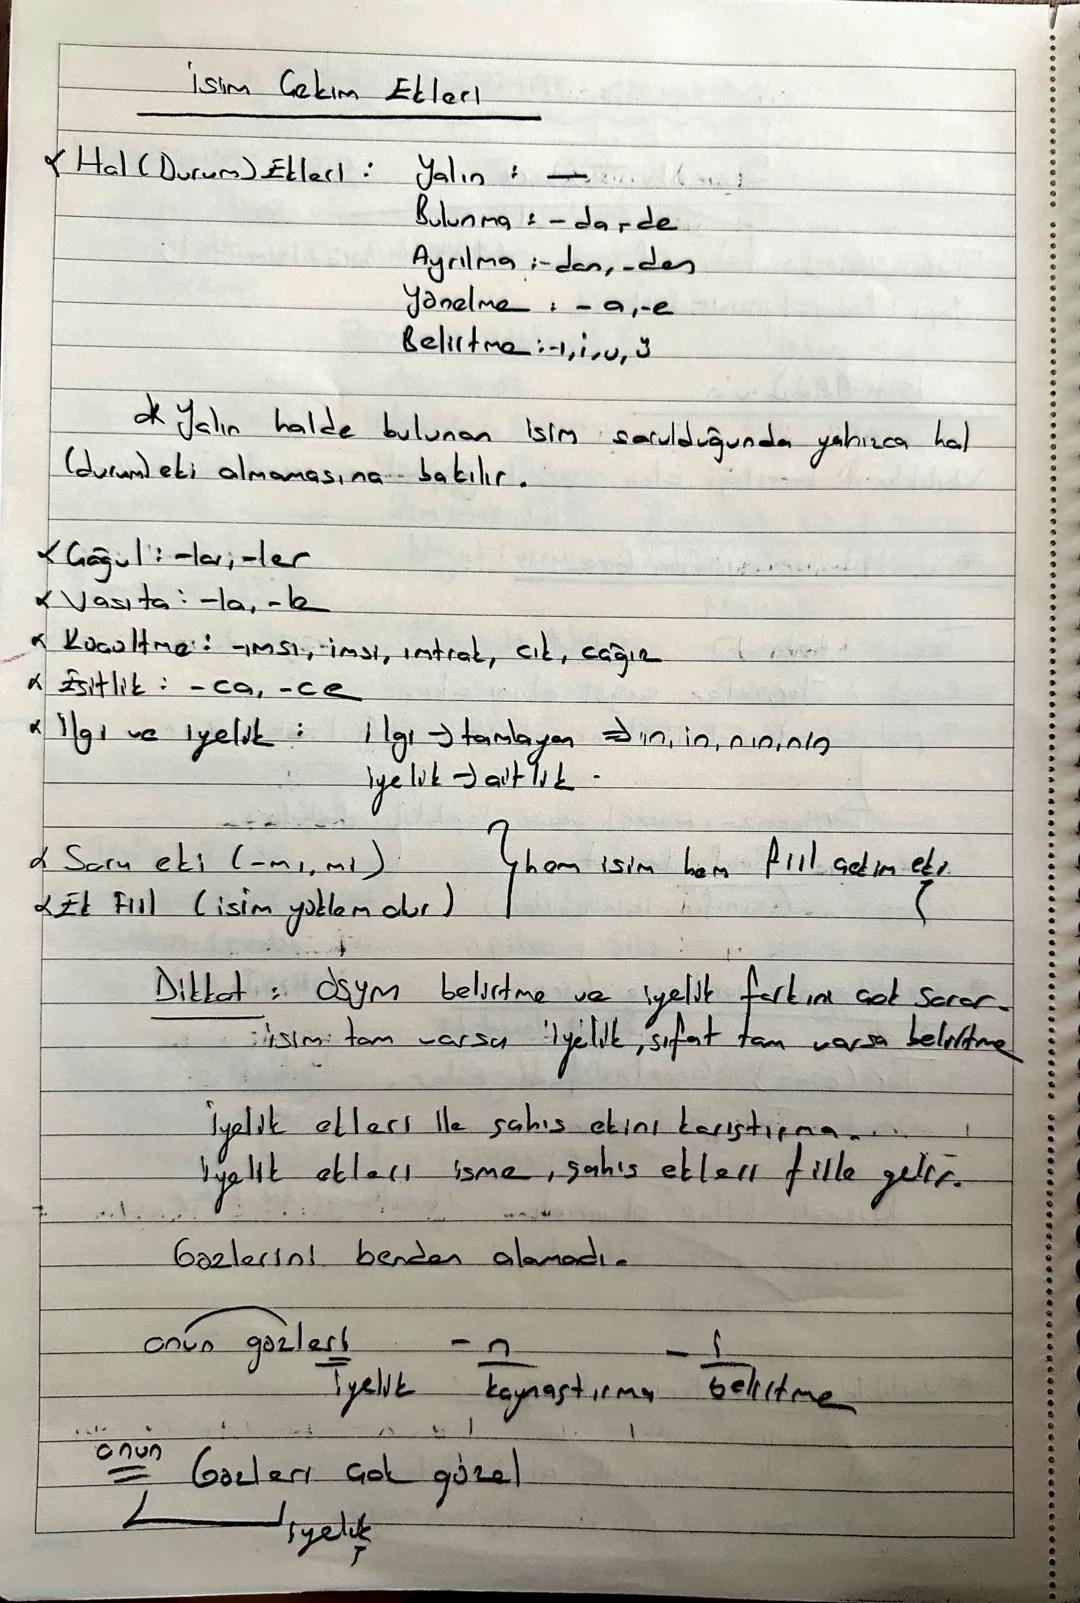 İsim Çekim Ekleri
Hal (Durum) Ekleri : Yalın : —
Bulunma : -da, -de
Ayrılma : -dan, -den
Yönelme : -a, -e
Belirtme : -ı, i, u, ü
* Yalın halde bulunan isim sorulduğunda yalnızca hal
(durum) eki almamasına bakılır.
Çoğul : -lar, -ler
Vasıta : -la, -le
Küçültme : -ımsı, -imsi, ımtrak, cık, cağız
Eşitlik : -ca, -ce
İlgi ve iyelik : ilgi → tamlayan ⇒ ın, in, nın, nin
iyelik → aitlik
Soru eki (-mı, mi) } hem isim hem fiil çekim eki
Ek Fiil (isim yüklem olur)
Dikkat : ÖSYM belirtme ve iyelik farkını çok sorar.
isim tam varsa iyelik, sıfat tam varsa belirtme
İyelik ekleri ile şahıs ekini karıştırma.
İyelik ekleri isme, şahıs ekleri fiille gelir.
Gözlerini benden alamadı.
onun gözleri -n -i
iyelik kaynaştırma belirtme
onun Gözleri çok güzel
iyelik